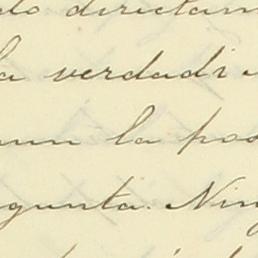 do directam
la verdadi
un la pos
gunta. Nin